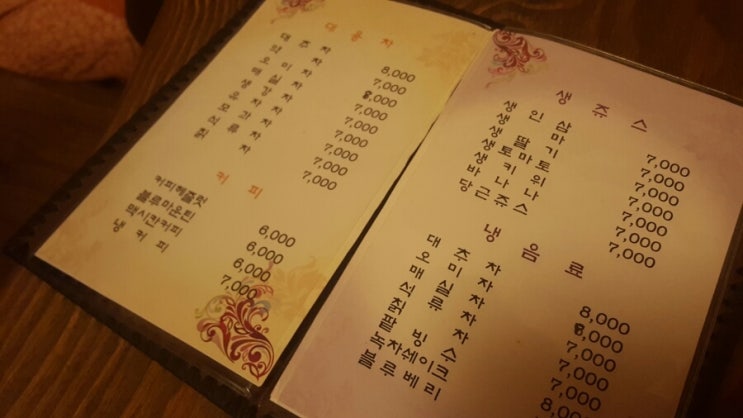 대용차
대추차 8,000
약차 7,000
오미자 8,000
매실차 7,000
생강차 7,000
유자차 7,000
모과차 7,000
석류차 7,000
칡차 7,000
커피
커피헤즐럿 6,000
블루마운틴 6,000
맥시칸커피 6,000
냉커피 7,000
생쥬스
생인삼 7,000
생마 7,000
생딸기 7,000
생토마토 7,000
생키위 7,000
바나나 7,000
당근쥬스 7,000
냉음료
대추차 8,000
오미자
매실차 7,000
석류차 7,000
칡차 7,000
팥빙수 8,000
녹차쉐이크
블루베리